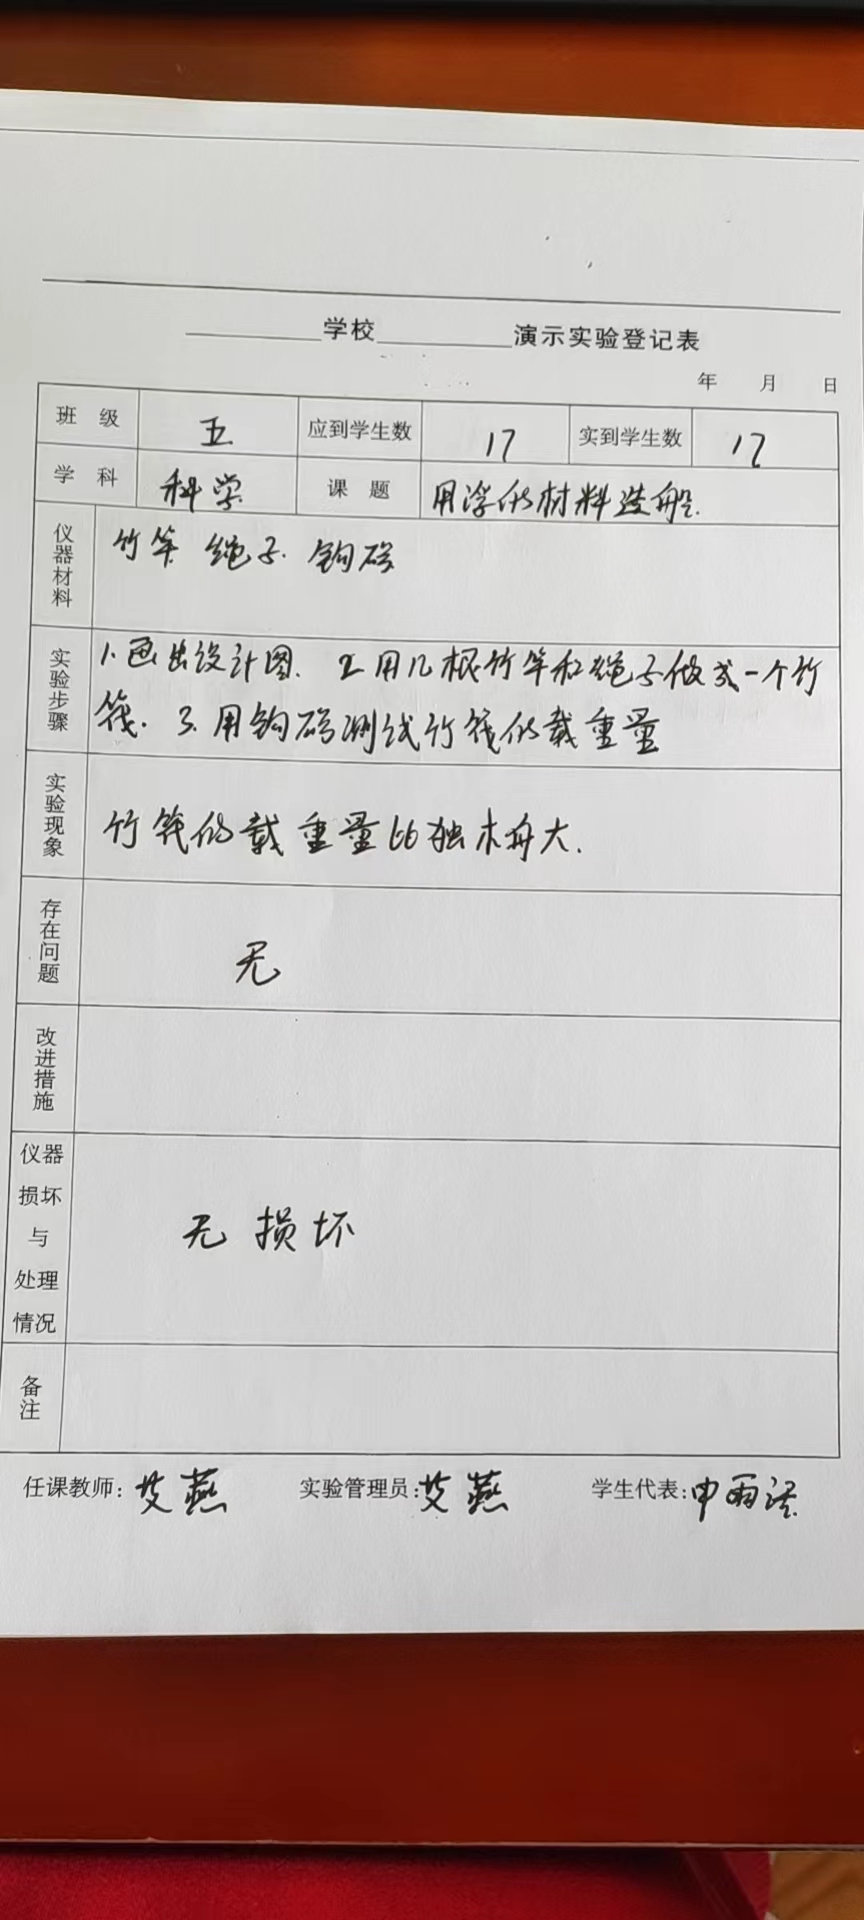 ______学校______演示实验登记表
年 月 日
班 级 五 应到学生数 17 实到学生数 17
学 科 科学 课 题 用浮的材料造船.
仪器材料 竹竿 绳子 钩码
实验步骤 1.画出设计图. 2.用几根竹竿和绳子做成一个竹
筏. 3.用钩码测试竹筏的载重量
实验现象 竹筏的载重量比独木舟大.
存在问题 无
改进措施
仪器
损坏
与
处理
情况
无损坏
备注
任课教师: 艾燕 实验管理员: 艾燕 学生代表: 申雨